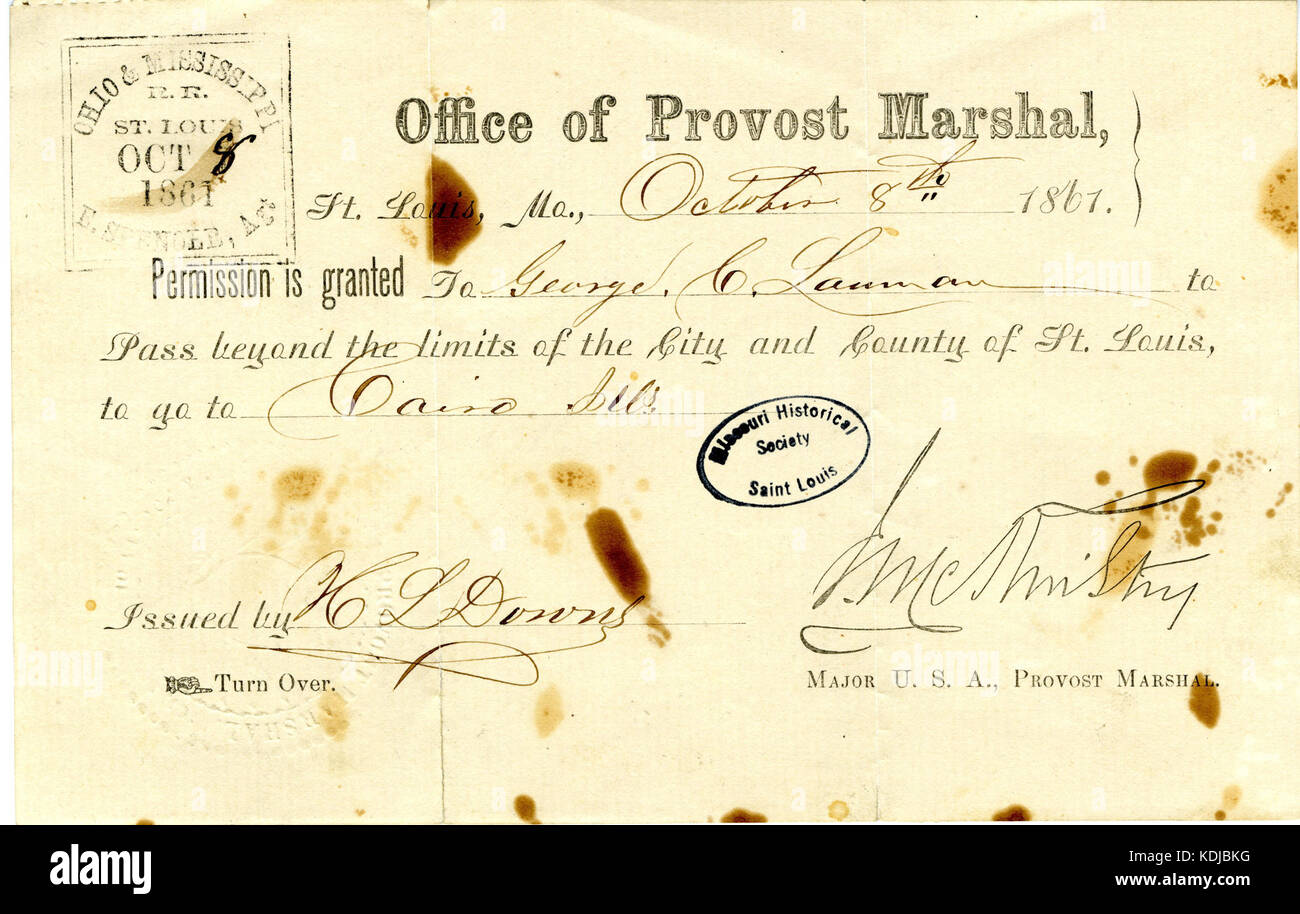 OHIO & MISSISSIPPI
R. R.
ST. LOUIS
OCT 8
1861
E. SPENCER, Agt
Office of Provost Marshal,
St. Louis, Mo., October 8th 1861.
Permission is granted To George. C. Lauman to
Pass beyond the limits of the City and County of St. Louis,
to go to Cairo Ills
Missouri Historical
Society
Saint Louis
Issued by H L Downs
J. McKinstry
Turn Over.
MAJOR U. S. A., PROVOST MARSHAL.
alamy
Image ID: KDJBKG
www.alamy.com